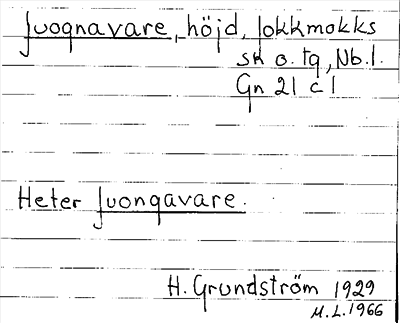 Juognavare, höjd, Jokkmokks
sk o. tg, Nb.l.
Gn 21 c 1
Heter Juongavare.
H. Grundström 1929
M.L. 1966